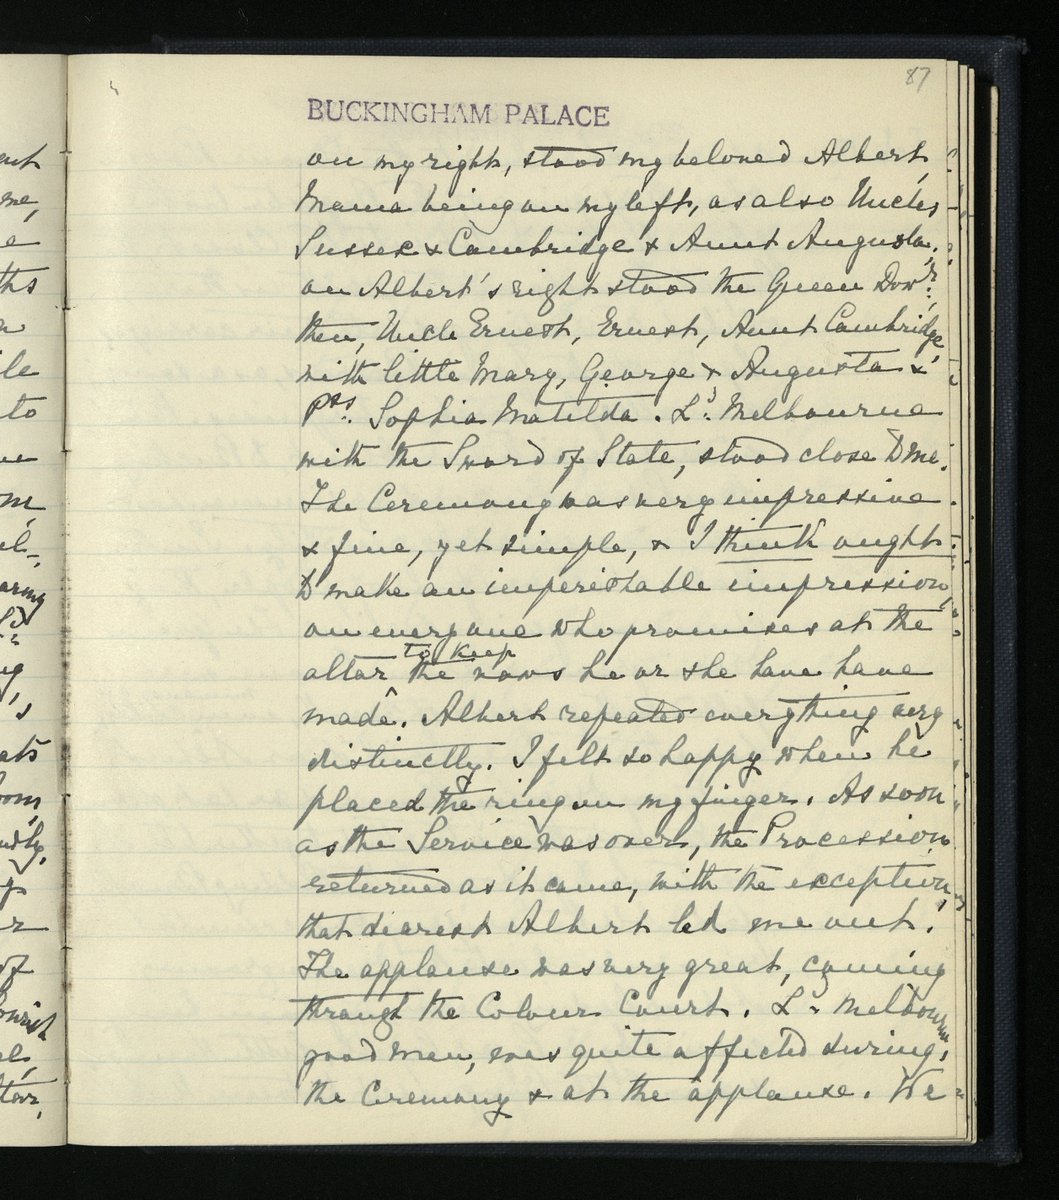 87
BUCKINGHAM PALACE
on my right, stood my beloved Albert,
Mama being on my left, as also Uncles
Sussex & Cambridge & Aunt Augusta;
on Albert's right stood the Queen Dowr:
then, Uncle Ernest, Ernest, Aunt Cambridge
with little Mary, George & Augusta &
Pss: Sophia Matilda. Ld: Melbourne
with the Sword of State, stood close to me.
The Ceremony was very impressive
& fine, yet simple, & I think ought
to make an imperishable impression,
on every one who promises at the
altar to keep the vows he or she have have
made. Albert repeated everything very
distinctly. I felt so happy when he
placed the ring on my finger. As soon
as the Service was over, the Procession
returned as it came, with the exception,
that dearest Albert led me out.
The applause was very great, coming
through the Colour Court. Ld: Melbourne,
good man, was quite affected during
the Ceremony & at the applause. We